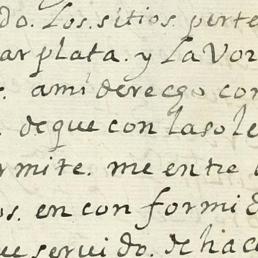 do. Los. sitios. perte
ar plata. y La Voz
. ami derecgo con
. de que con la sole
rmite. me entre
os. en con formi
ue servido. de hac